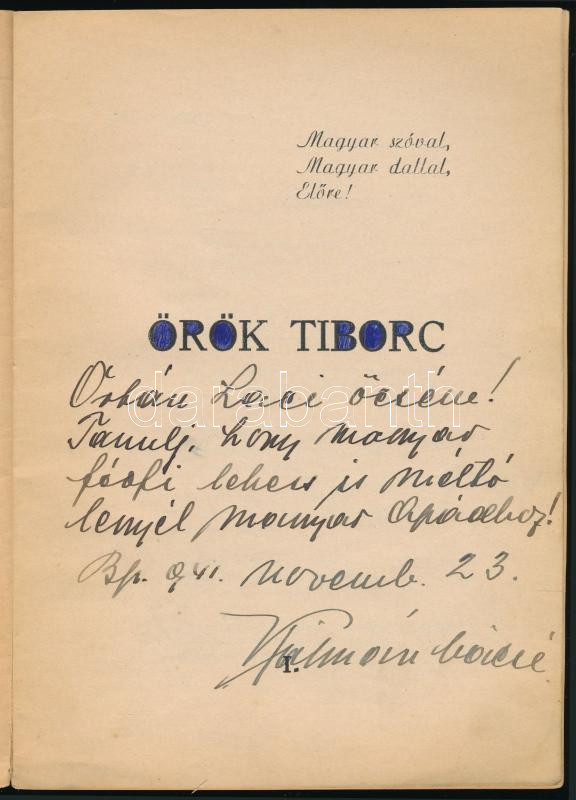 Magyar szóval,
Magyar dallal,
Előre!
ÖRÖK TIBORC
Orbán Laci öcsém!
Tanulj, hogy magyar
férfi lehess és méltó
legyél magyar Apádhoz!
Bp. 941. novemb. 23.
Kálmán bácsi
I.
darabanth